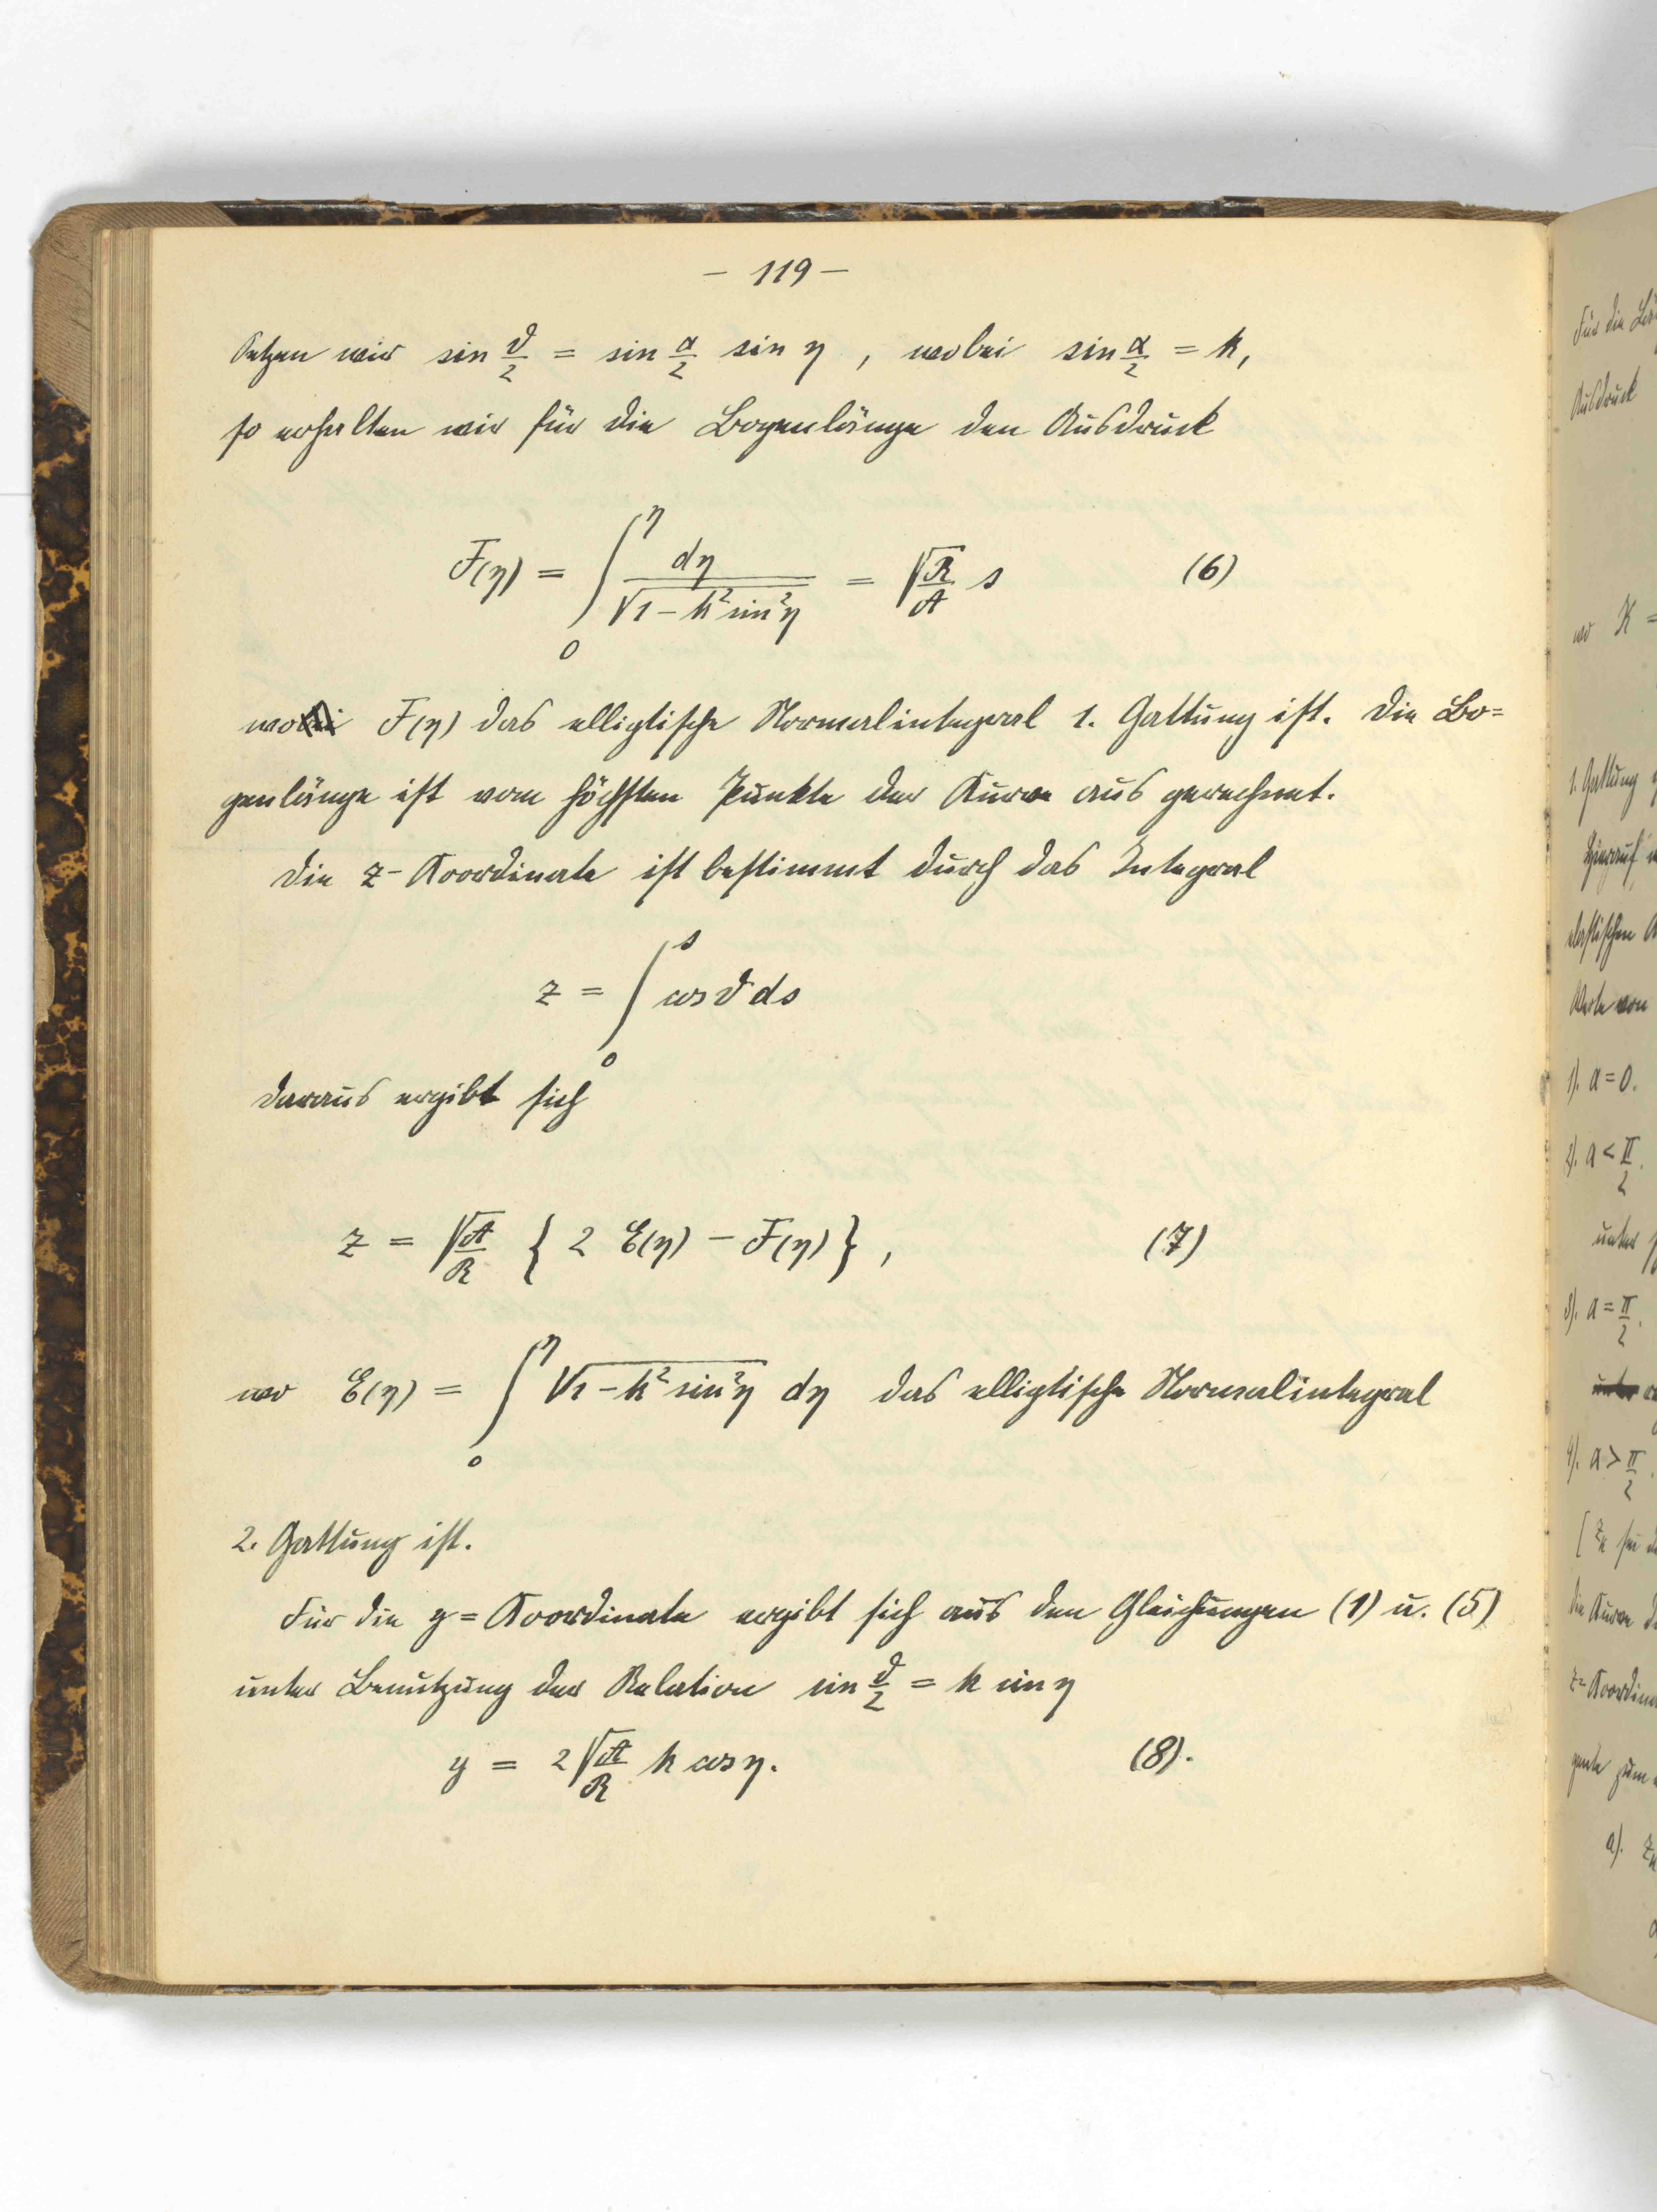 – 119 –
Setzen wir sin ϑ/2 = sin α/2 sin η , wobei sin α/2 = k,
so erhalten wir für die Bogenlänge den Ausdruck
F(η) = ∫₀^η dη / √(1 – k² sin² η) = √(R/A) s (6)
wo F(η) das elliptische Normalintegral 1. Gattung ist. Die Bo=
genlänge ist vom höchsten Punkte der Kurve aus gerechnet.
Die z-Koordinate ist bestimmt durch das Integral
z = ∫₀^s cos ϑ ds
daraus ergibt sich
z = √(A/R) { 2 E(η) – F(η) } , (7)
wo E(η) = ∫₀^η √(1 – k² sin² η) dη das elliptische Normalintegral
2. Gattung ist.
Für die y=Koordinate ergibt sich aus den Gleichungen (1) u. (5)
unter Benutzung der Relation sin ϑ/2 = k sin η
y = 2 √(A/R) k cos η. (8).
Für die
Ausdruck
wo K =
1. Gattung
Hierauf
elastischen
Werte von
1). α = 0.
2). α < π/2.
unter
3). α = π/2.
4). α > π/2.
die Kurve
a).